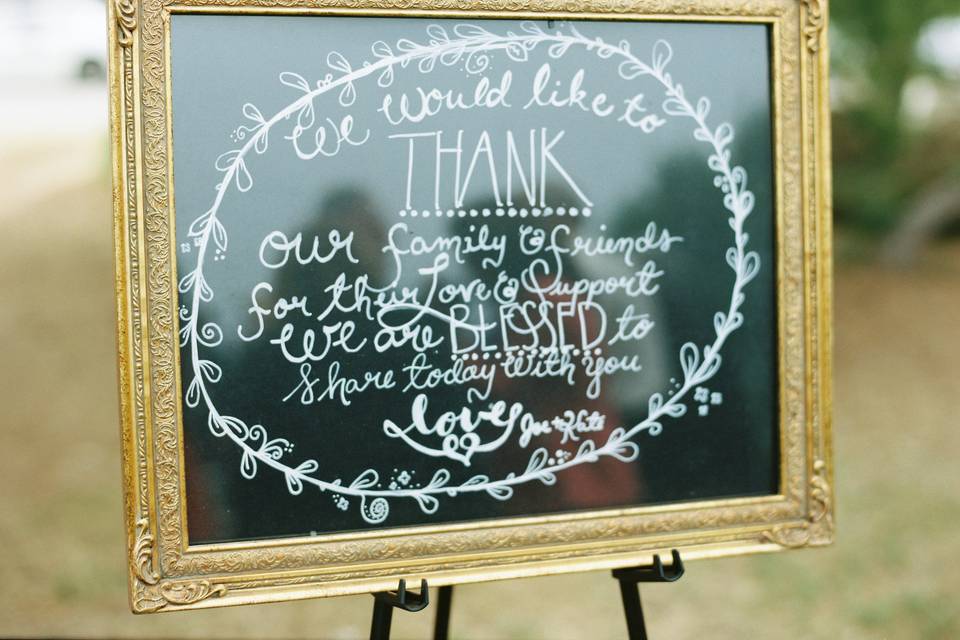 We would like to
THANK
our family & friends
for their Love & Support
We are BLESSED to
Share today with you
love, Joe & Kate